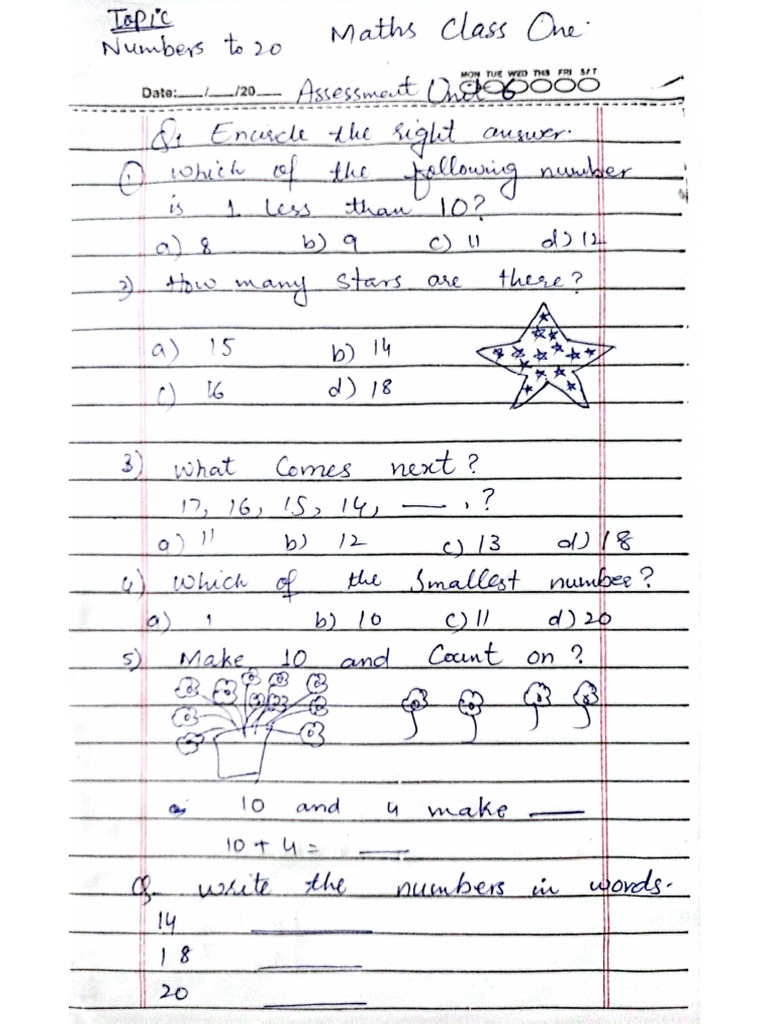 Topic
Numbers to 20 Maths Class One.
MON TUE WED THS FRI SAT
Date:___/___/20___ Assessment Unit 6
Q1 Encircle the right answer.
1) Which of the following number
is 1 less than 10?
a) 8 b) 9 c) 11 d) 12
2) How many stars are there?
a) 15 b) 14
c) 16 d) 18
3) What Comes next?
17, 16, 15, 14, __ . ?
a) 11 b) 12 c) 13 d) 18
4) Which of the smallest number?
a) 1 b) 10 c) 11 d) 20
5) Make 10 and Count on?
10 and 4 make __
10 + 4 = __
Q. Write the numbers in words.
14 ______
18 ______
20 ______